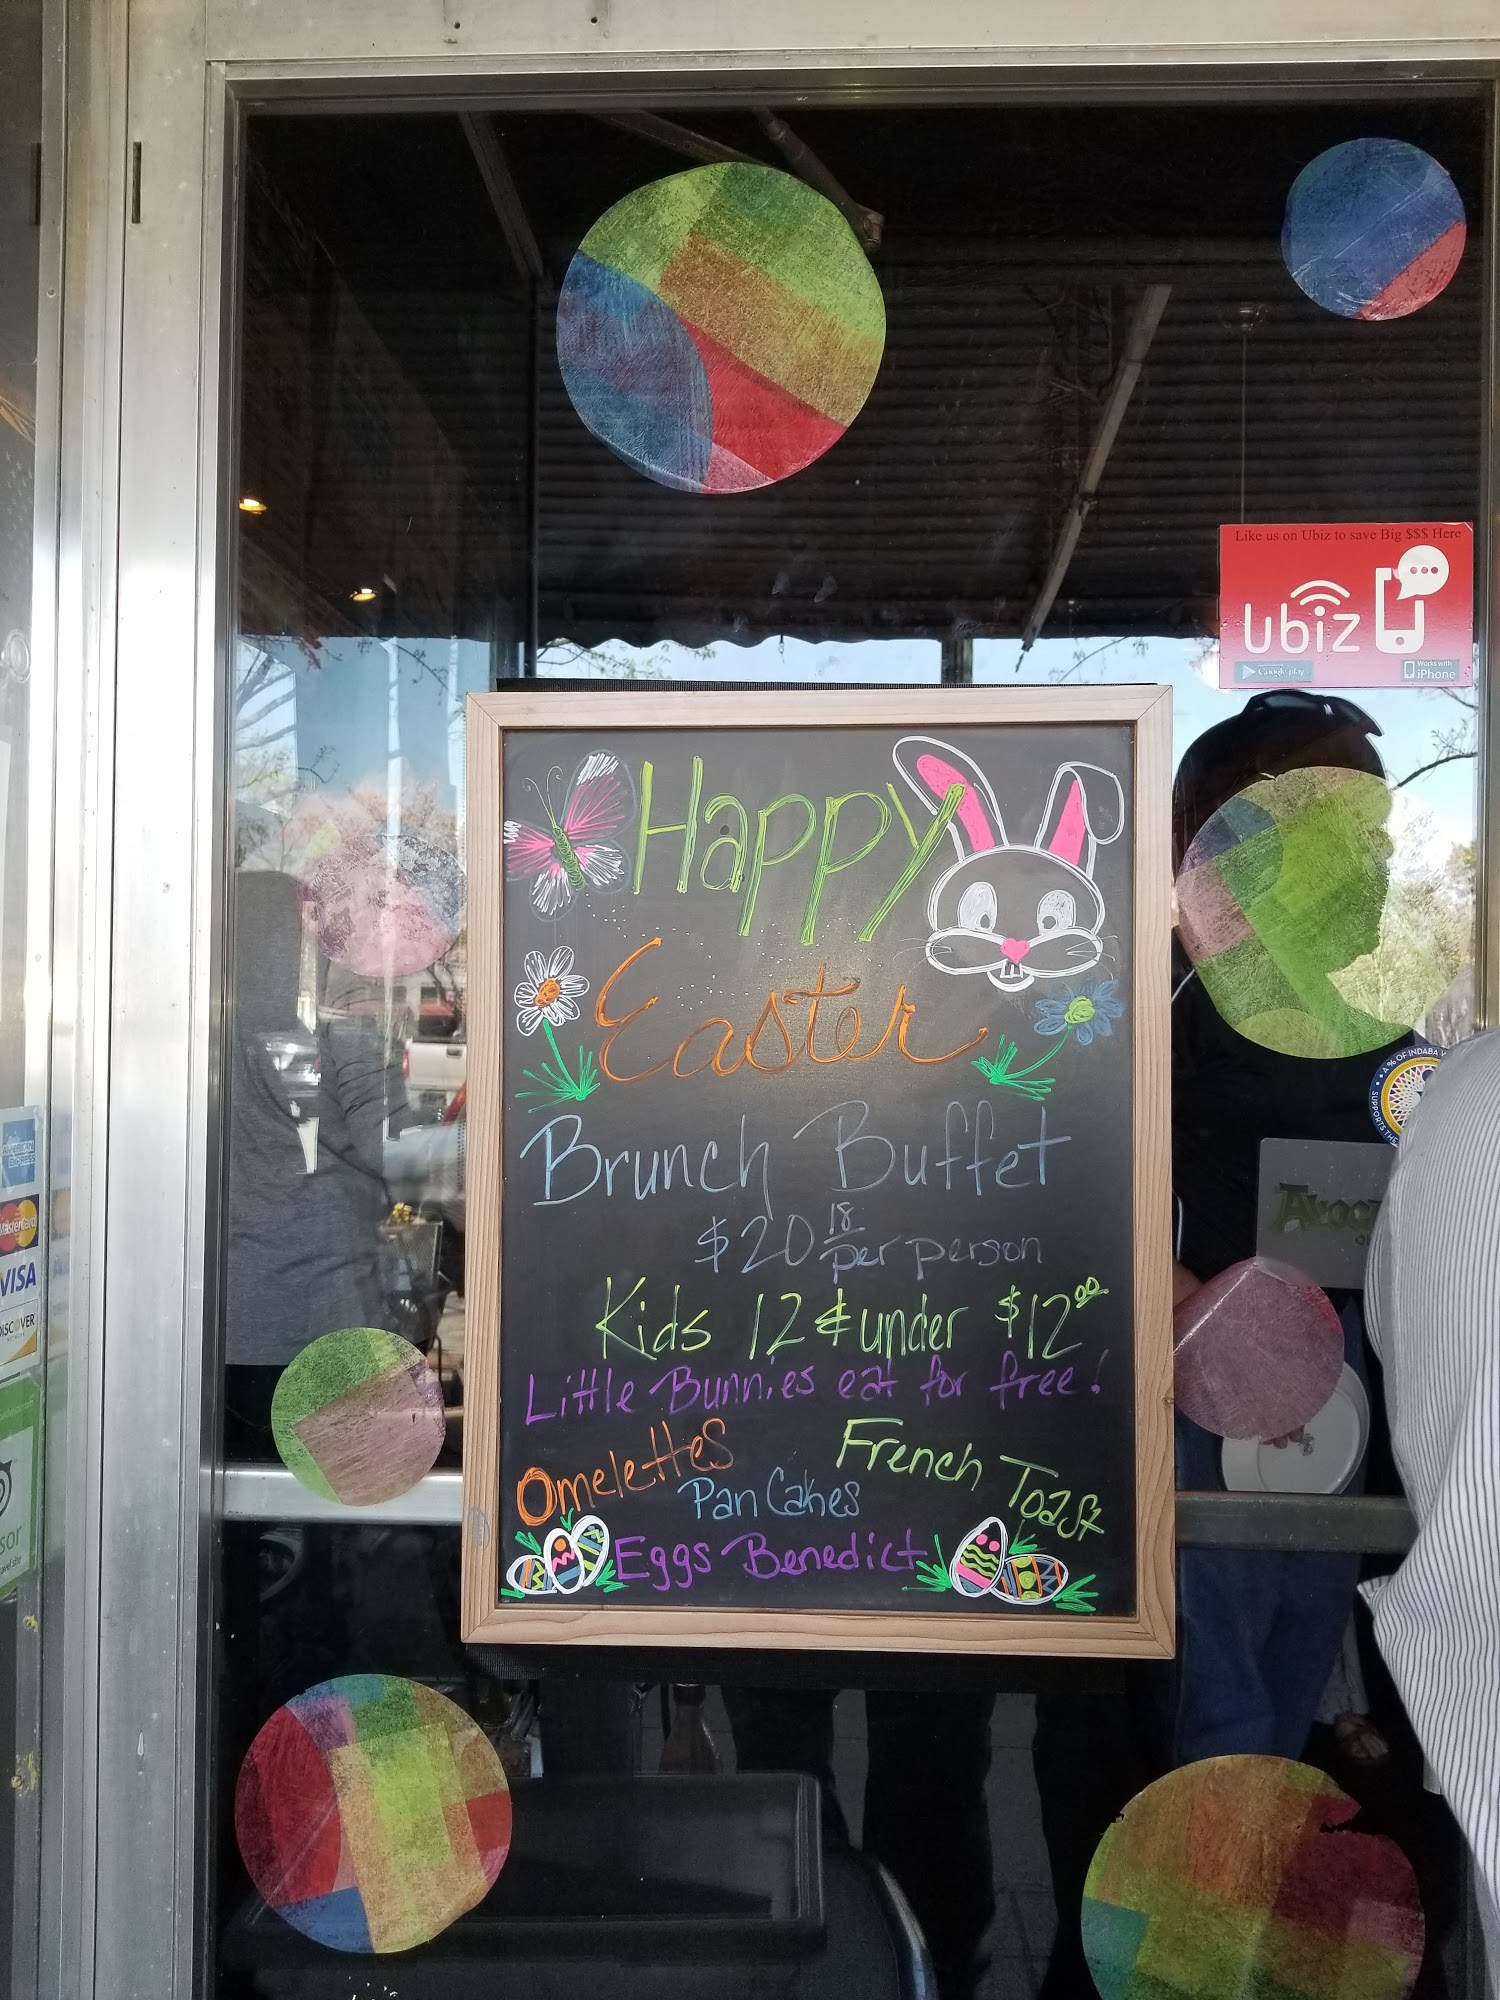 Like us on Ubiz to save Big $$$ Here
ubiz
Google play
Works with
iPhone
Happy
Easter
Brunch Buffet
$20 18 per person
Kids 12 & under $12.00
Little Bunnies eat for free!
Omelettes
French Toast
PanCakes
Eggs Benedict
AMERICAN
EXPRESS
MasterCard
VISA
DISCOVER
A % OF INDABA
SUPPORTS THE